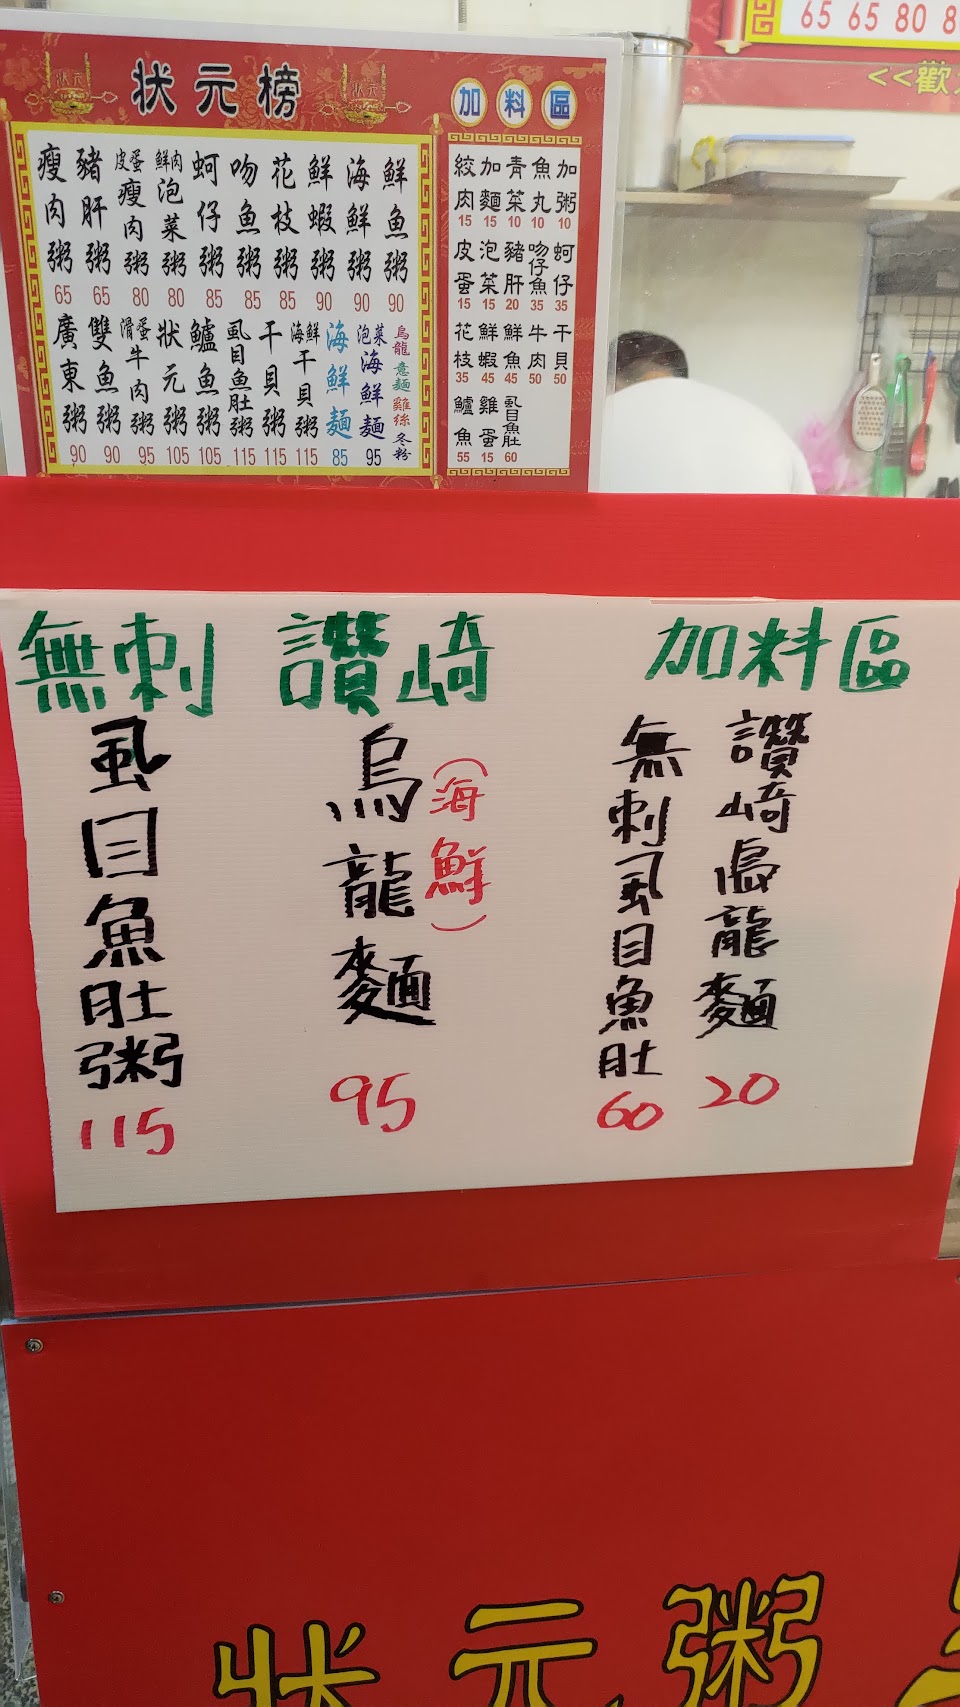 65 65 80 8
<<歡
狀元榜
瘦肉粥 65
豬肝粥 65
皮蛋瘦肉粥 80
鮮肉泡菜粥 80
蚵仔粥 85
吻魚粥 85
花枝粥 85
鮮蝦粥 90
海鮮粥 90
鮮魚粥 90
廣東粥 90
雙魚粥 90
滑蛋牛肉粥 95
狀元粥 105
鱸魚粥 105
虱目魚肚粥 115
干貝粥 115
海鮮干貝粥 115
海鮮麵 85
泡菜海鮮麵 95
烏龍 意麵 雞絲 冬粉
加料區
絞肉 15
加麵 15
青菜 10
魚丸 10
加粥 10
皮蛋 15
泡菜 15
豬肝 20
吻仔魚 35
蚵仔 35
花枝 35
鮮蝦 45
鮮魚 45
牛肉 50
干貝 50
鱸魚 55
雞蛋 15
虱目魚肚 60
無刺
虱目魚肚粥
115
讚崎
烏龍麵
(海鮮)
95
加料區
無刺虱目魚肚
60
讚崎烏龍麵
20
狀元粥